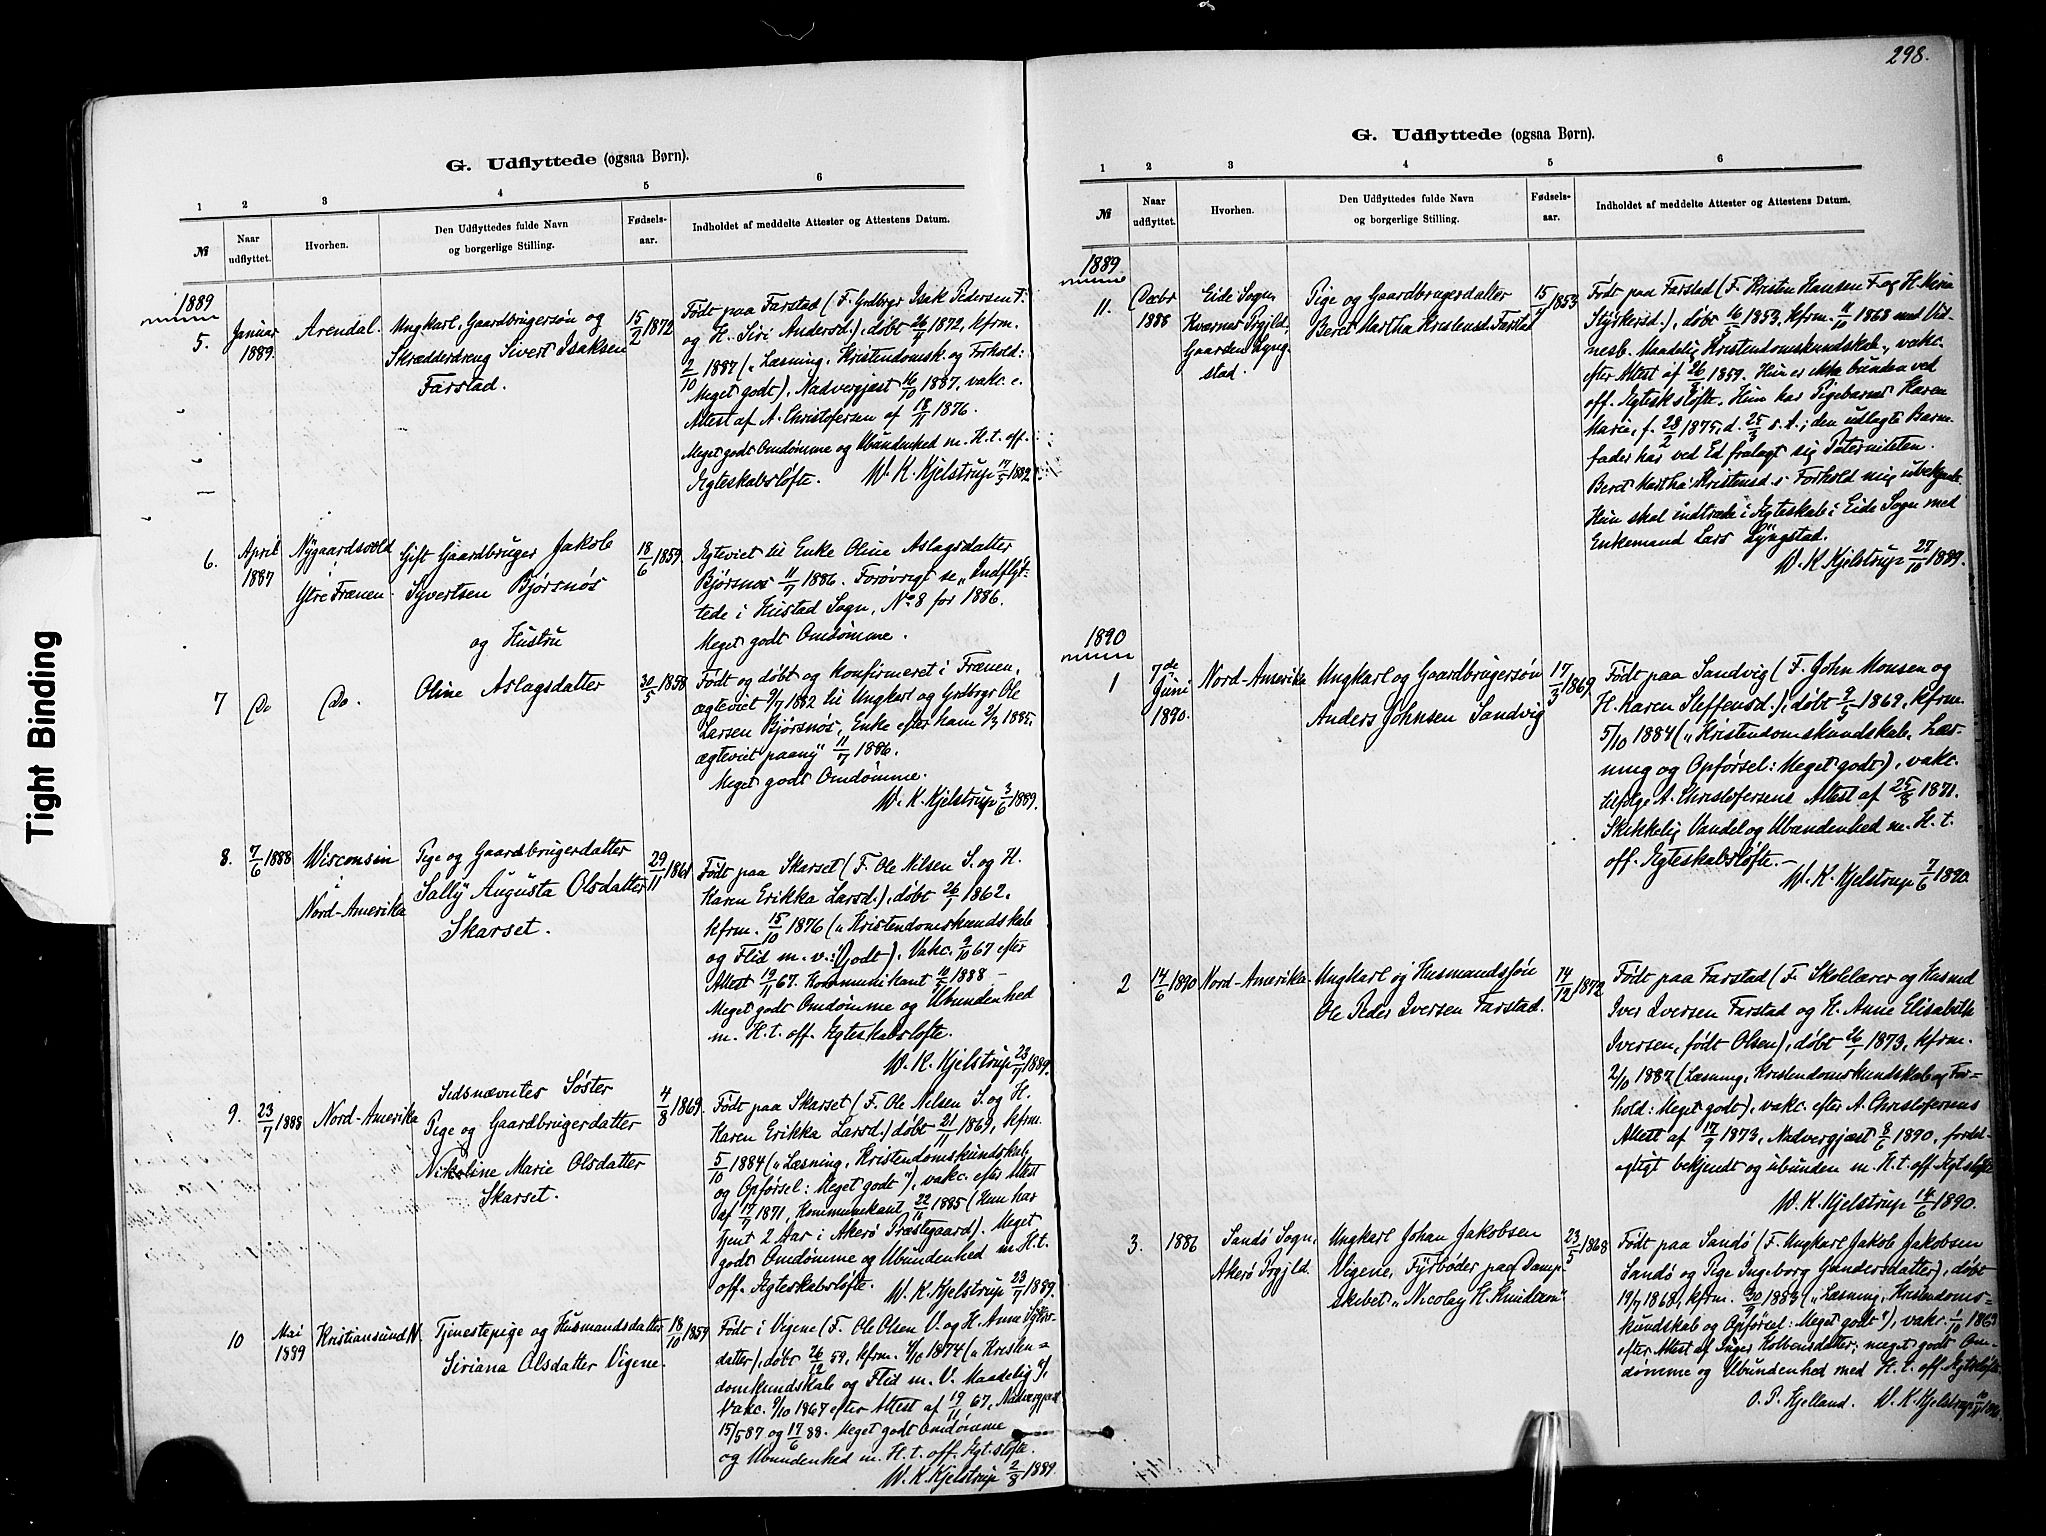 298.
Tight Binding
G. Udflyttede (ogsaa Børn).
1 2 3 4 5 6
№ Naar udflyttet. Hvorhen. Den Udflyttedes fulde Navn og borgerlige Stilling. Fødsels-aar. Indholdet af meddelte Attester og Attestens Datum.
1889
5. Januar 1889. Arendal. Ungkarl, Gaardbrugersøn og
Skrædderdreng Sivert Isaksen
Farstad.
15/2 1872
Født paa Farstad (F. Grdbrgr Isak Pedersen F.
og H. Siri Andersd.), døbt 26/4 1872, kfrm.
2/10 1887 (Læsning, Kristendomsk. og Forhold:
Meget godt), Nadvergjæst 16/10 1887, vakc. e.
Attest af A. Christofersen af 18/11 1876.
Meget godt Omdømme og Ubundenhed m. H. t. off.
Ægteskabsløfte. W. K. Kjelstrup
6. April 1887 Nygaardsvold
Ytre Frænen.
Gift Gaardbruger Jakob
Syvertsen Bjørsnøs
og Hustru
18/6 1859
Ægteviet til Enke Oline Aslagsdatter
Bjørsnøs 11/7 1886. Forøvrigt se „Indflyt-
tede i Hustad Sogn, No. 8 for 1886.
Meget godt Omdømme.
7 Do Do. Oline Aslagsdatter 30/5 1858
Født og døbt og konfirmeret i Frænen,
ægteviet 9/7 1882 til Ungkarl og Grdbrgr Ole
Larsen Bjørsnøs, Enke efter ham 2/3 1885,
ægteviet paany 11/7 1886.
Meget godt Omdømme.
W. K. Kjelstrup 3/6 1889.
8. 7/6 1888 Wisconsin
i
Nord-Amerika
Pige og Gaardbrugerdatter
Sally Augusta Olsdatter
Skarset.
29/11 1861
Født paa Skarset (F. Ole Nilsen S. og H.
Karen Erikka Larsd.), døbt 26/1 1862,
kfrm. 15/10 1876 („Kristendomskundskab
og Flid m. v.: Godt), Vakc. 9/10 67 efter
Attest 19/11 67. Kommunikant 1888 –
Meget godt Omdømme og Ubundenhed
m. H. t. off. Ægteskabsløfte.
W. K. Kjelstrup 23/7 1889.
9. 23/7 1888 Nord-Amerika
Sidsnævntes Søster
Pige og Gaardbrugerdatter
Nikoline Marie Olsdatter
Skarset.
4/8 1869
Født paa Skarset (F. Ole Nilsen S. og H.
Karen Erikka Larsd.) døbt 21/11 1869, kfrm.
5/10 1884 („Læsning, Kristendomskundskab
og Opførsel: Meget godt“), vakc. efter Attest
af 17/7 1871, Kommunikant 22/11 1885 (Hun har
tjent 2 Aar i Akerø Præstegaard). Meget
godt Omdømme og Ubundenhed m. H. t.
off. Ægteskabsløfte. W. K. Kjelstrup 23/7 1889.
10 Mai 1889 Kristiansund N.
Tjenestepige og Husmandsdatter
Siriana Olsdatter Vigene.
18/10 1859
Født i Vigene (F. Ole Olsen V. og H. Anne
datter), døbt 26/12 59, kfrm. 4/10 1874 („Kristen=
domkundskab og Flid m. V. Maadelig“),
Vakc. 9/10 1867 efter Attest af 19/11 67, Nadvergjæst
15/5 87 og 17/6 88. Meget godt Omdømme
og Ubundenhed m. H. t. off. Ægt.sløfte.
W. K. Kjelstrup 2/8 1889.
G. Udflyttede (ogsaa Børn).
1 2 3 4 5 6
№ Naar udflyttet. Hvorhen. Den Udflyttedes fulde Navn og borgerlige Stilling. Fødsels-aar. Indholdet af meddelte Attester og Attestens Datum.
1889
11. Decbr 1888 Eide Sogn,
Kvernes Prgjld.
Gaarden Lyng-
stad.
Pige og Gaardbrugerdatter
Beret Martha Kristensd. Farstad
1853
Født paa Farstad (F. Kristen Hansen F. og H. Maria
Styrkersd.), døbt 26/5 1853, kfrm. 11/10 1868 med Vid-
nesb. Maadelig Kristendomskundskab, vakc.
efter Attest af 26/9 1859. Hun er ikke bunden ved
off. Ægtesk.sløfte. Hun har Pigebarnet Karen
Marie, f. 28/2 1875, d. 25/3 s. A.; den udlagte Barne-
fader har ved Ed fralagt sig Paterniteten.
Beret Martha Kristensd.s Forhold mig ubekjendt.
Hun skal indtræde i Ægteskab i Eide Sogn med
Enkemand Lars Lyngstad.
W. K. Kjelstrup 27/10 1889.
1890
1 7de Juni 1890. Nord-Amerika
Ungkarl og Gaardbrugersøn
Anders Johnsen Sandvig
17/3 1869
Født paa Sandvig (F. John Monsen og
H. Karen Steffensd.), døbt 9/5 1869, kfrm.
5/10 1884 („Kristendomskundskab, Læs-
ning og Opførsel: Meget godt), vakc.
tilfølge A. Christofersens Attest af 25/8 1871.
Skikkelig Vandel og Ubundenhed m. H. t.
off. Ægteskabsløfte. –
W. K. Kjelstrup 7/6 1890.
2 14/6 1890 Nord-Amerika
Ungkarl og Husmandssøn
Ole Peder Iversen Farstad.
14/12 1872
Født paa Farstad (F. Skolelærer og Husmd
Iver Iversen Farstad og H. Anne Elisabeth
Iversen, født Olsen), døbt 26/1 1873, kfrm.
2/10 1887 (Læsning, Kristendomskundskab og For=
hold: Meget godt), vakc. efter A. Christofersens
Attest af 17/9 1873, Nadvergjæst 8/6 1890, fordel-
agtigt bekjendt og ubunden m. H. t. off. Ægtsløfte
W. K. Kjelstrup 14/6 1890.
3. 1886 Sandø Sogn,
Akerø Prgjld.
Ungkarl Johan Jakobsen
Vigene, Fyrbøder paa Damp-
skibet „Nicolay H. Knudtzon“
23/5 1868
Født paa Sandø (F. Ungkarl Jakob Jakobsen
Sandø og Pige Ingeborg Gundersdatter), døbt
19/7 1868, kfrm. 30/9 1883 („Læsning, Kristendoms=
kundskab og Opførsel: Meget godt“), vakc. 1/10 1869
efter Attest af Inger Kolbensdatter; meget godt Om-
dømme og Ubundenhed med H. t. off. Ægtsløfte.
O. P. Hjelland. W. K. Kjelstrup